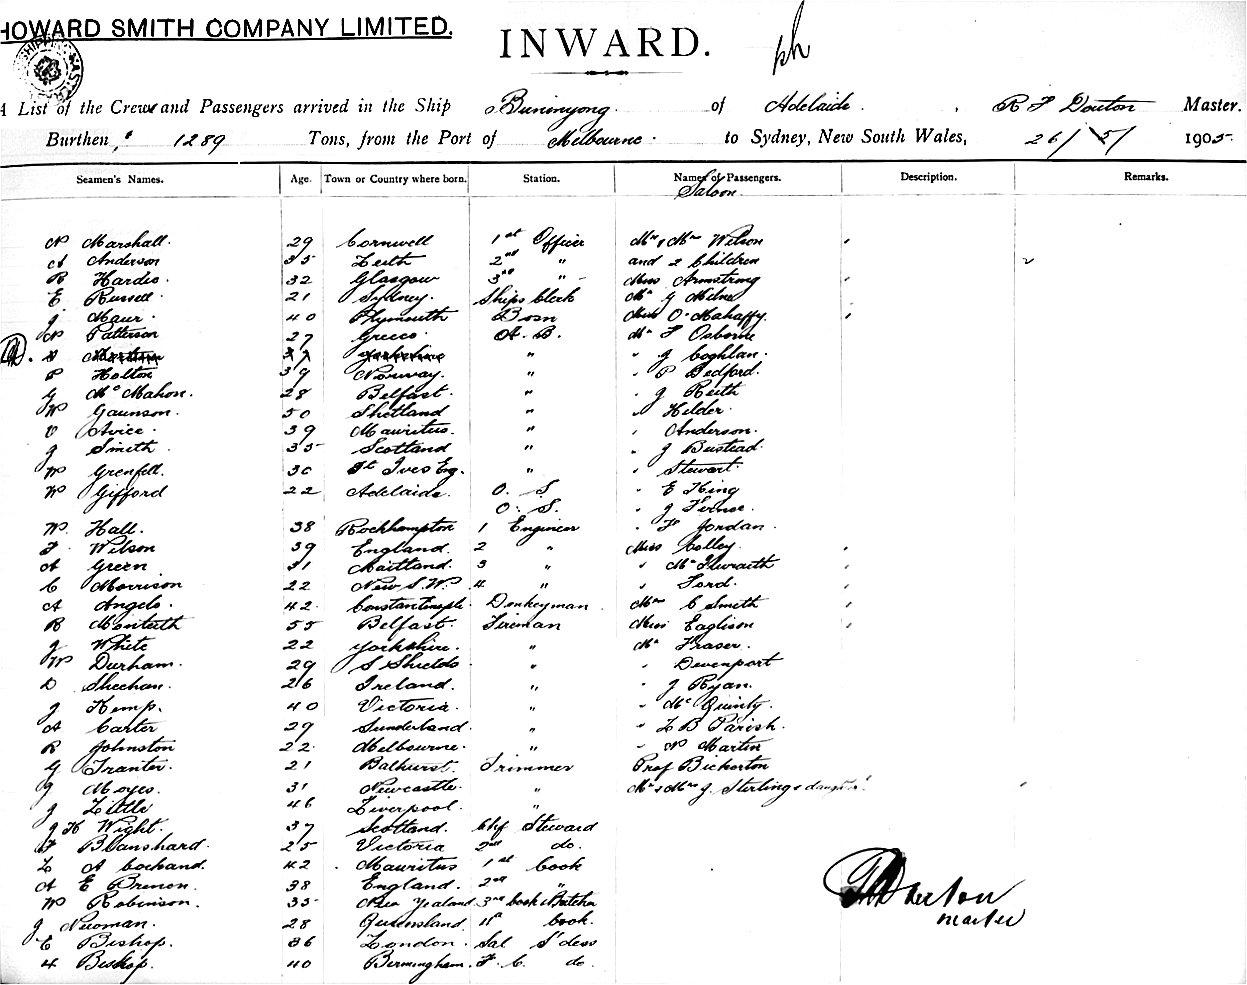 HOWARD SMITH COMPANY LIMITED.
INWARD.
A List of the Crew and Passengers arrived in the Ship Buninyong of Adelaide, R F Douton Master.
Burthen, 1289 Tons, from the Port of Melbourne to Sydney, New South Wales, 26/5/ 1905
Seamen's Names. Age. Town or Country where born. Station. Names of Passengers. Description. Remarks.
Saloon
W Marshall. 29 Cornwell 1st Officer Mr & Mrs Wilson
A Anderson 35 Leith 2nd " and 2 Children
R Hardie 32 Glasgow 3rd " Miss Armstrong
E Russell 21 Sydney. Ships Clerk Mr G Milne
J Maur 40 Plymouth Bosn Miss O'Mahaffy
W Patterson 27 Greece A. B. Mr F Osborne
" " J Coghlan.
P Holton 39 Norway. " " P Bedford.
G McMahon. 28 Belfast. " " J Reith
W Gaunson. 50 Shetland " " Hilder
V Avice. 39 Mauritus. " " Anderson.
J Smith 35 Scotland " " J Bustead.
W Grenfell. 30 St Ives Eng. " " Stewart.
W Gifford 22 Adelaide. O. S. " E King
O. S. " J
W. Hall. 38 Rockhampton 1 Engineer " F Jordan.
F. Wilson 39 England. 2 " Miss Colley.
A Green 31 Maitland 3 " " McIlwraith
C Morrison 22 New S W. 4 " " Ford.
A Angelo. 42. Constantinople Donkeyman Mrs C Smith
R Monteith 55 Belfast. Fireman Miss Eaglison
J White 22 Yorkshire. " Mr Fraser.
W Durham. 29 S Shields " " Devenport
D Sheehan. 26 Ireland. " " J Ryan.
J Kemp. 40 Victoria. " " McQuinty.
A Carter 29 Sunderland. " " L B Parish.
R Johnston 22. Melbourne. " " W Martin
G Tranter. 21 Bathurst. Trimmer Prof Bickerton
J Moyes. 31 Newcastle. " Mr & Mrs J. Sterling & daughter
J Little 46 Liverpool. "
J H Wight. 37 Scotland. Chf Steward
F Blanshard. 25 Victoria 2nd do.
L A Cochand. 42 Mauritus 1st Cook
A E Brenon. 38 England. 2nd "
W Robinson. 35 New Zealand. 3rd Cook & Butcher
J Newman. 28 Queensland. 4th Cook.
E Bishop. 36 London. Sal S'dess
H Bishop. 40 Birmingham. F. C. do.
R F Douton
master